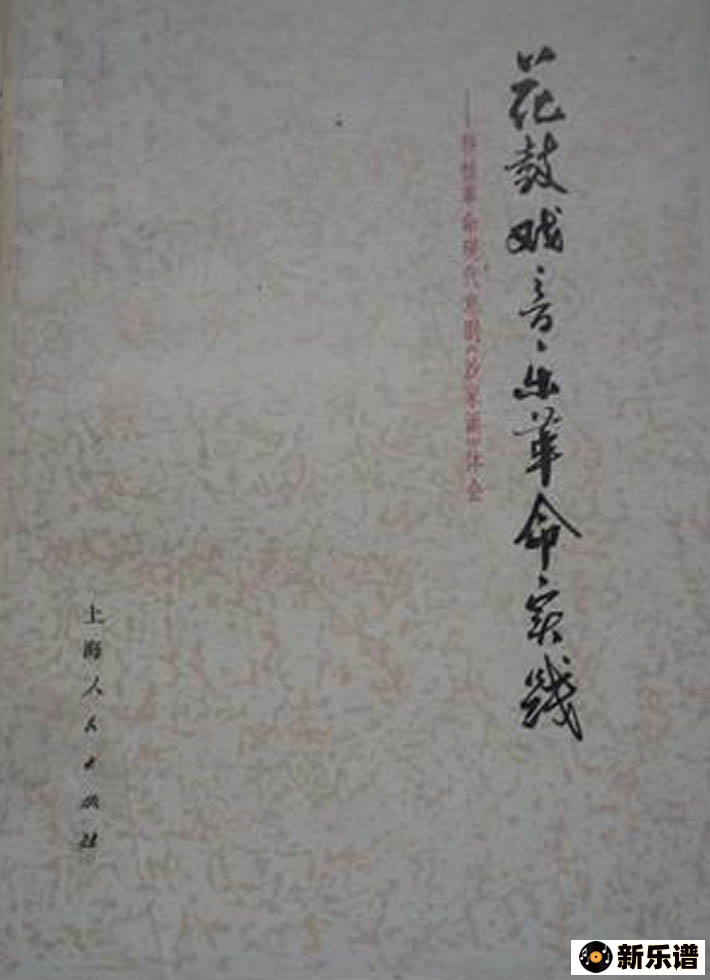 花鼓戏音乐革命实践
——移植革命现代京剧《沙家浜》体会
上海人民出版社
新乐谱